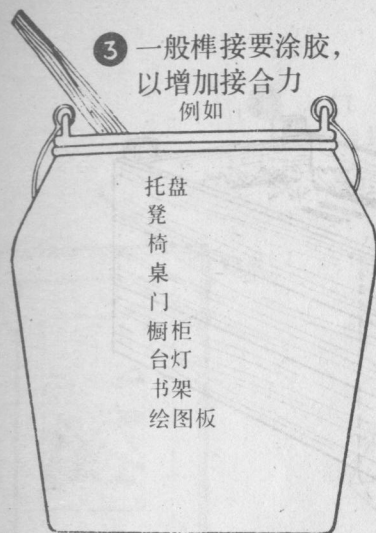 3 一般榫接要涂胶，
以增加接合力
例如
托盘
凳
椅
桌
门
橱柜
台灯
书架
绘图板